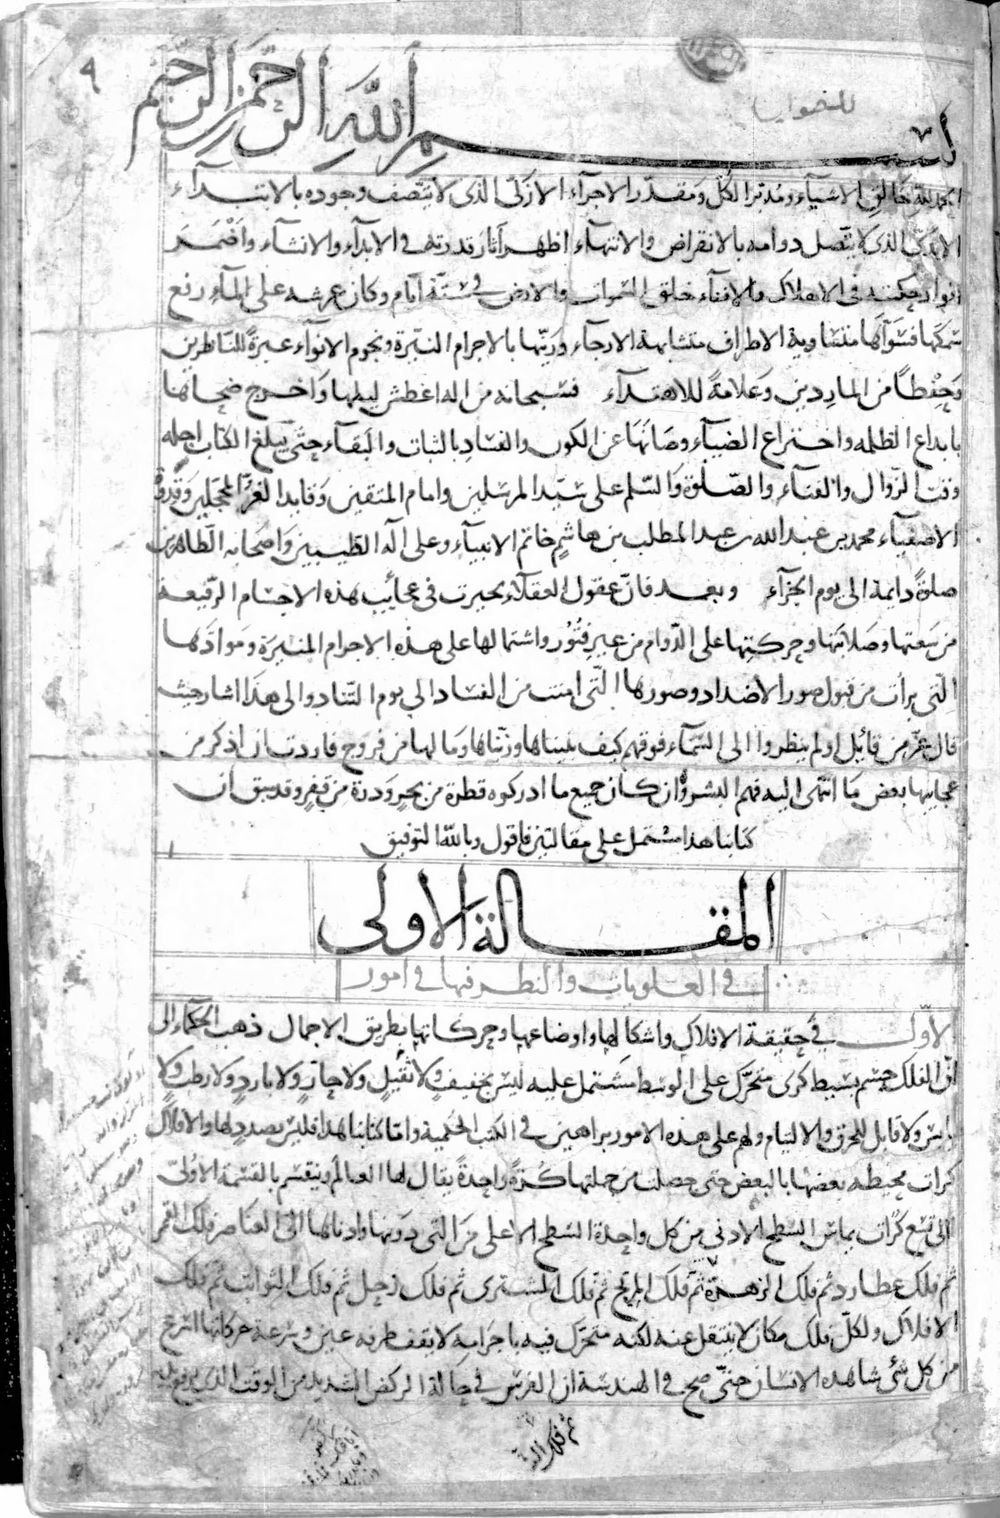 ٩
بسم الله الرحمن الرحيم
الحمد لله خالق الاشيآء ومدبر الكل ومقدر الاجزآء الازلى الذى لا يتصف وجوده بالابتدآء
الابدى الذى لا يتصل دوامه بالانقراض والانتهآء اظهر آثار قدرته فى الابدآء والانشآء واضمر
انوار حكمته فى الاهلاك والافنآء خلق السموات والارض فى ستة ايام وكان عرشه على المآء رفع
سمكها فسواها متساوية الاطراف متشابهة الارجآء وزينها بالاجرام النيرة ونجوم الانوآء عبرةً للناظرين
وحفظاً من الماردين وعلامةً للاهتدآء فسبحانه من اله اغطش ليلها واخرج ضحاها
بابداع الظلمه واختراع الضيآء وصانها عن الكون والفساد بالثبات والبقآء حتى يبلغ الكتاب اجله
وقت الزوال والفنآء والصلوة والسلم على سيد المرسلين وامام المتقين وقايد الغر المحجلين وقدوة
الاصفيآء محمد بن عبد الله بن عبد المطلب بن هاشم خاتم الانبيآء وعلى آله الطيبين واصحابه الطاهرين
صلوةً دايمة الى يوم الجزآء وبعد فان عقول العقلآء تحيرت فى عجائب هذه الاجسام الرفيعة
من سعتها وصلابتها وحركتها على الدوام من غير فتور واشتمالها على هذه الاجرام المنيرة وموادها
التى برأت من قبول صور الاضداد وصورها التى امنت من الفساد الى يوم التناد والى هذا اشار حيث
قال عز من قائل اولم ينظروا الى السمآء فوقهم كيف بنيناها وزيناها وما لها من فروج فاردت ان اذكر من
عجايبها بعض ما انتهى اليه فهم البشر وان كان جميع ما ادركوه قطرة من بحر وذرة من قفر وقد سبق ان
كتابنا هذا مشتمل على مقالتين فاقول وبالله التوفيق
المقالة الاولى
فى العلويات والنظر فيها فى امور
الاول فى حقيقة الافلاك واشكالها واوضاعها وحركاتها بطريق الاجمال ذهب الحكماء الى
ان الفلك جسم بسيط كرى متحرك على الوسط مشتمل عليه ليس بخفيف ولا ثقيل ولا حار ولا بارد ولا رطب ولا
يابس ولا قابل للخرق والالتيام ولهم على هذه الامور براهين فى الكتب الحكمية واما كتابنا هذا فليس بصددها والافلاك
كرات محيطه بعضها بالبعض حتى حصلت من جملتها كرةً واحدةً يقال لها العالم وينقسم بالقسمة الاولى
الى تسع كرات يماس السطح الادنى من كل واحدة السطح الاعلى من التى دونها وادناها الى العناصر فلك القمر
ثم فلك عطارد ثم فلك الزهرة ثم فلك المريخ ثم فلك المشترى ثم فلك زحل ثم فلك الثوابت ثم فلك
الافلاك ولكل فلك مكان لا ينتقل عنه لكنه متحرك فيه باجرامه لا يقف طرفه عين وسرعة حركاتها اسرع
من كل شئ شاهده الانسان حتى صح فى الهندسة ان الفرس فى حالة الركض الشديد من الوقت الذى يرفع يديه